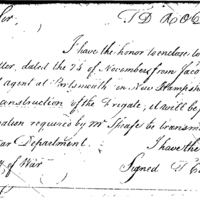 Sir,
I have the honor to enclose to
dated the 7th of November from Jaco
agent at Portsmouth in New Hampshire
onstruction of the frigate, it will be
ation required by Mr Sheafe be transm
ar Department.
I have the
of War
Signed